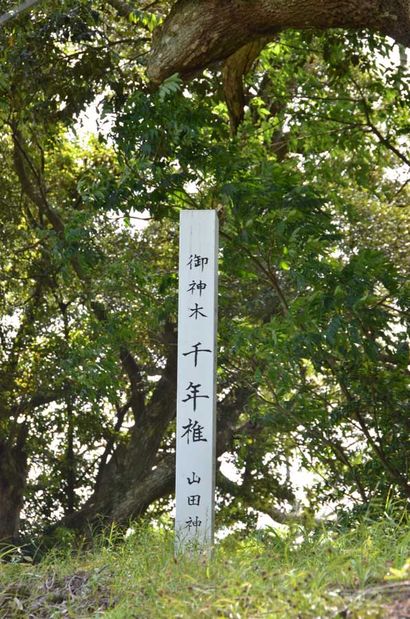 御神木 千年椎 山田神